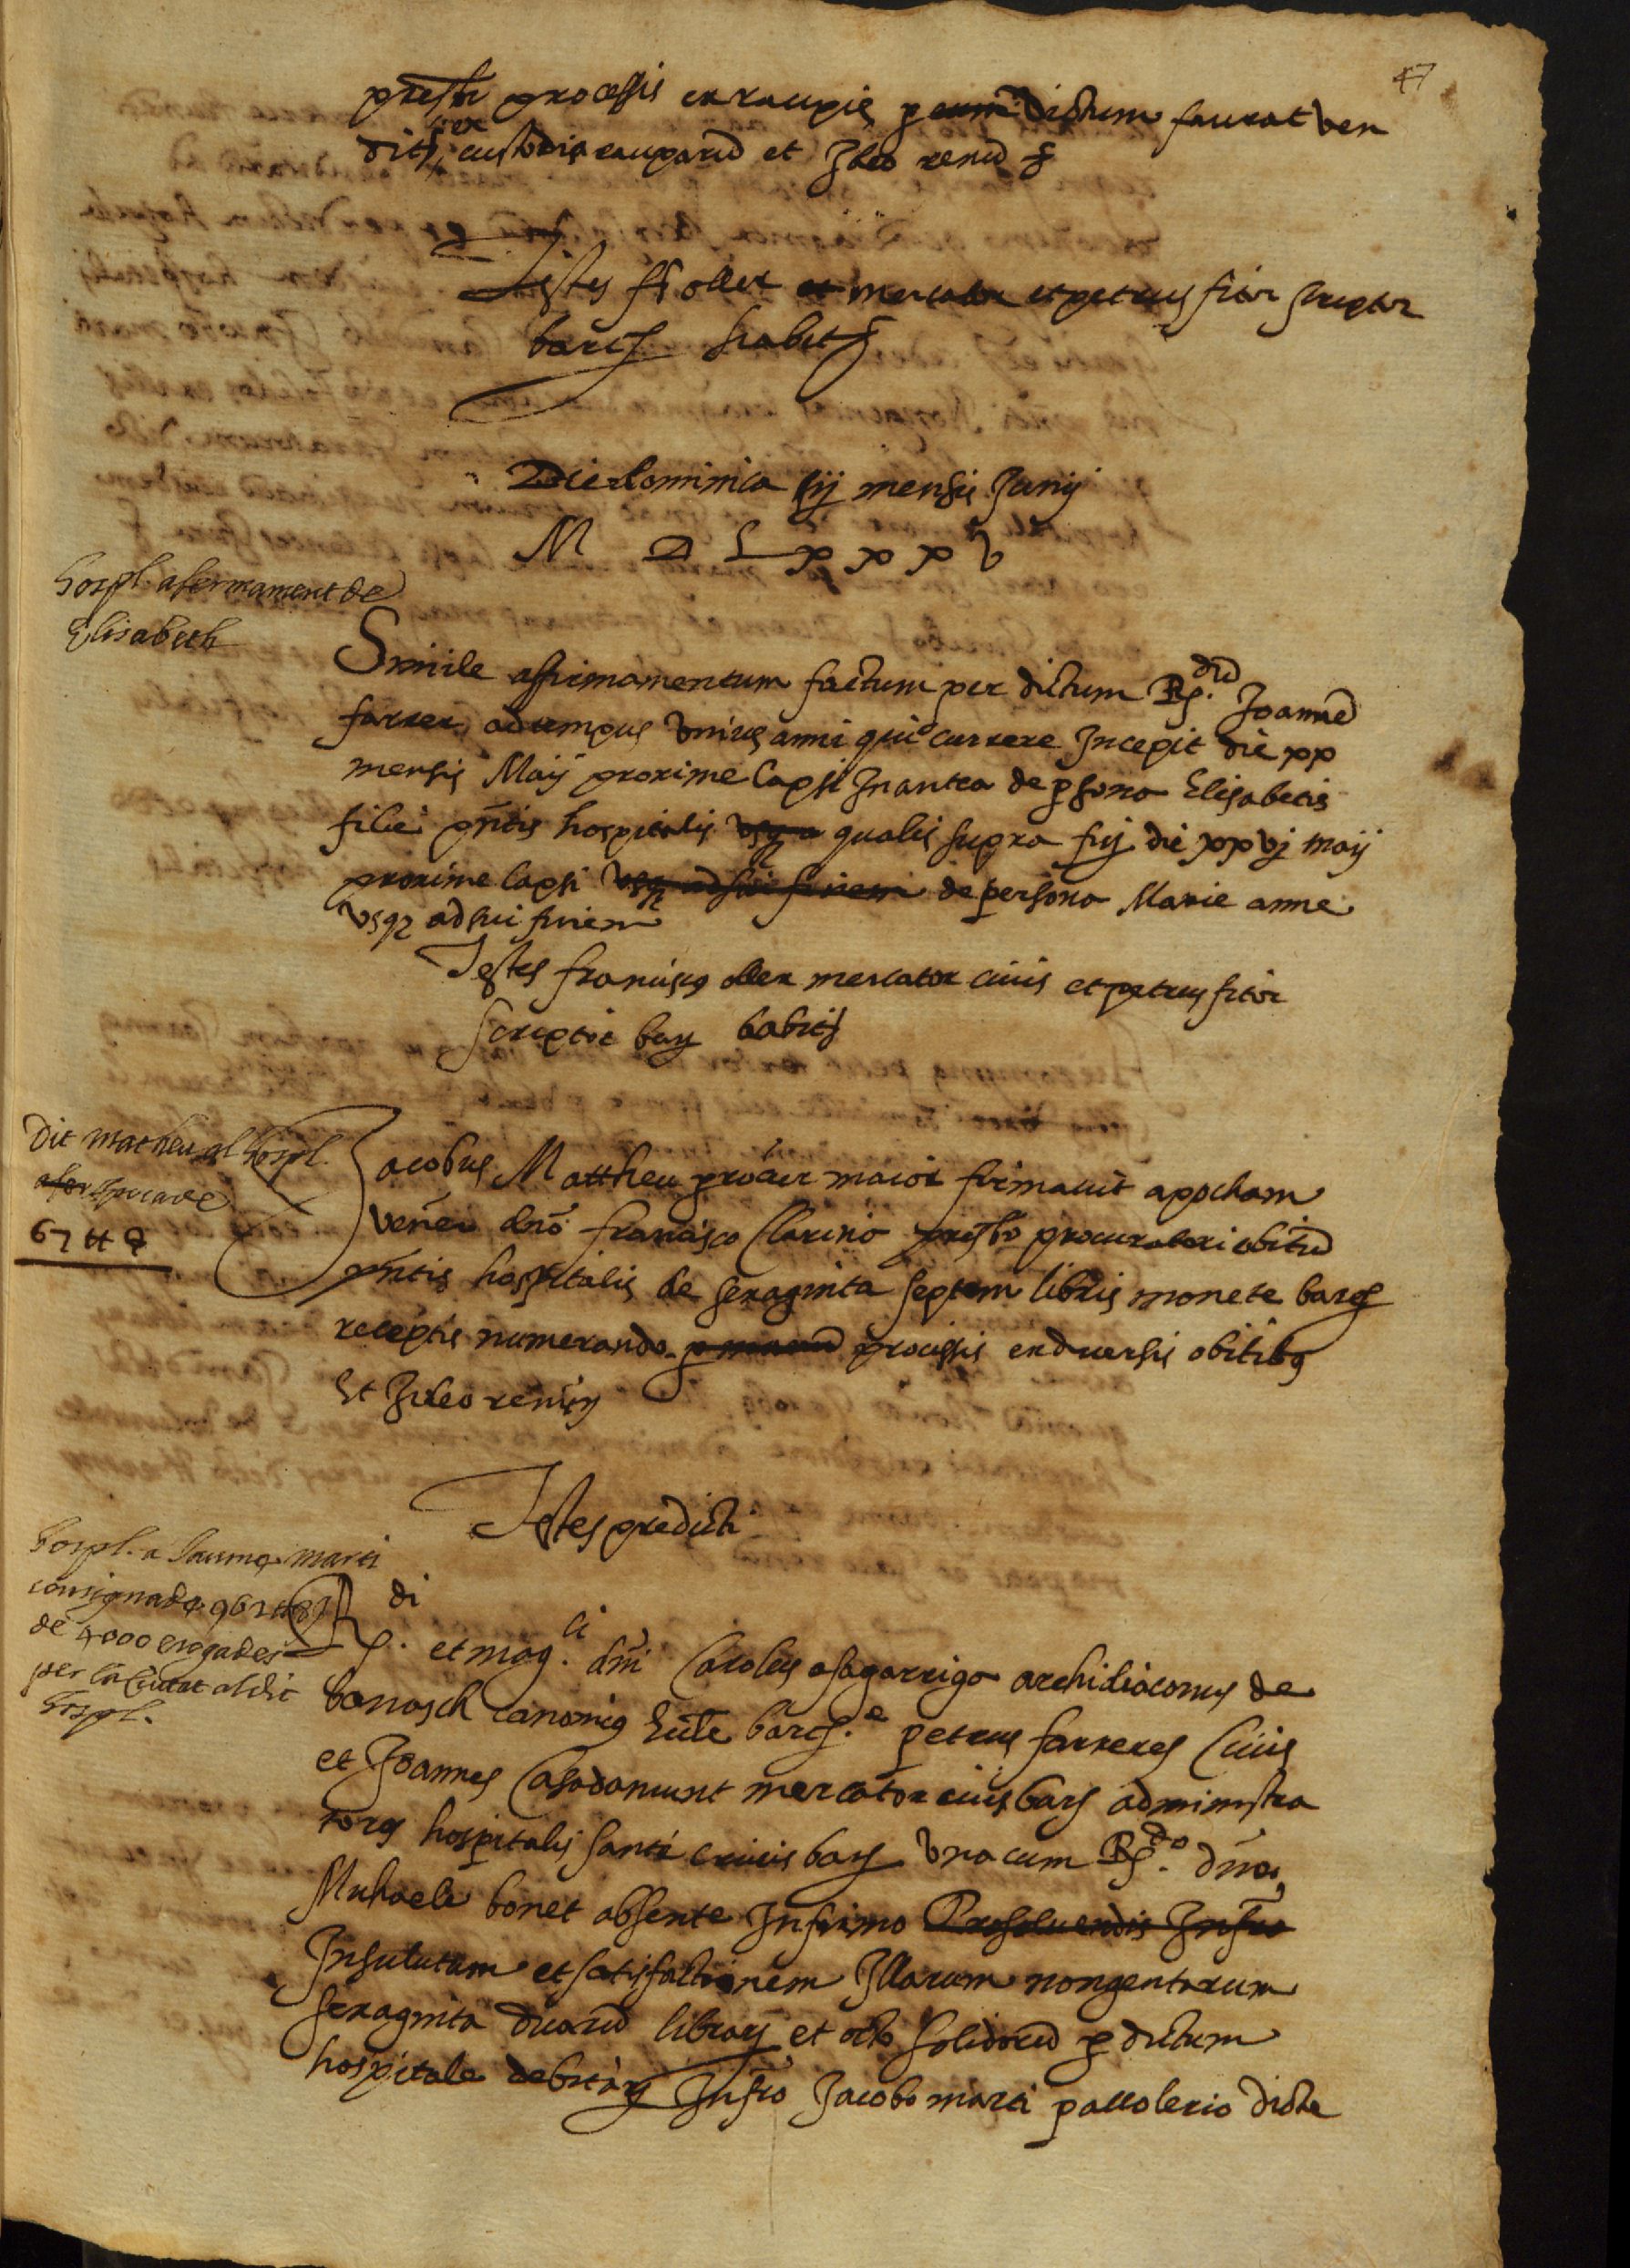 47
processis ex raupis dictum faurat ven
dit ex custodia rauparū et Ideo renū
Testes ff oller et mercator et petrus fitor scriptor
barc habit
Die dominica iij mensis Junij
M D L x x x v
hospl. afermament de
Elisabeth
Simile affirmamentum factum per dictum Rdū Joannē
farrer ad tempus vnius anni qui currere Incepit die xx
mensis Maij proxime lapsi Inantea de psona Elisabetis
filie pñtis hospitalis usq a qualis supra fuj die xxvj maij
proxime lapsi usq ad sui finem de persona Marie anne
usq ad sui finem
Testes franciscus oller mercator ciuis et petrus fitor
scriptor bar habit
Dit matheu al hospl.
apocade
67 ℔
Jacobus Mattheu procur maior firmauit apocham
veneñ dño francisco Clarino presbo procuratori obitū
pñtis hospitalis de sexaginta septem libris monete barc
receptis numerando p manū processis ex diuersis obitibq
Et Ideo renūn
Testes predicti
hospl. a Jaume marti
consignada 962 ℔ 8 s
de 4000 erogades
per la Ciutat al dit
hospl.
R di et mag. ci dñi Carolus asagarriga archidiaconus de
banasch canonicq Eccle barc.e petrus farreres Ciuis
et Joannes Casadamunt mercator ciuis barc administra
tores hospitalis sante crucis barc vna cum Rdo dño
Michaele bonet absente Infirmo Exsoluendis Insū
Insulutum et satisfactionem Illarum nongentarum
sexaginta duarū librarū et octo solidorū p dictum
hospitale debitarū Insūo Jacobo marti pallolerio dicte